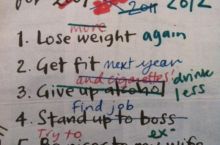 for 2011 2012
more
1. Lose weight again
2. Get fit next year
and cigarettes! drink
3. Give up alcohol less
find job
4. Stand up to boss
Try to ex-